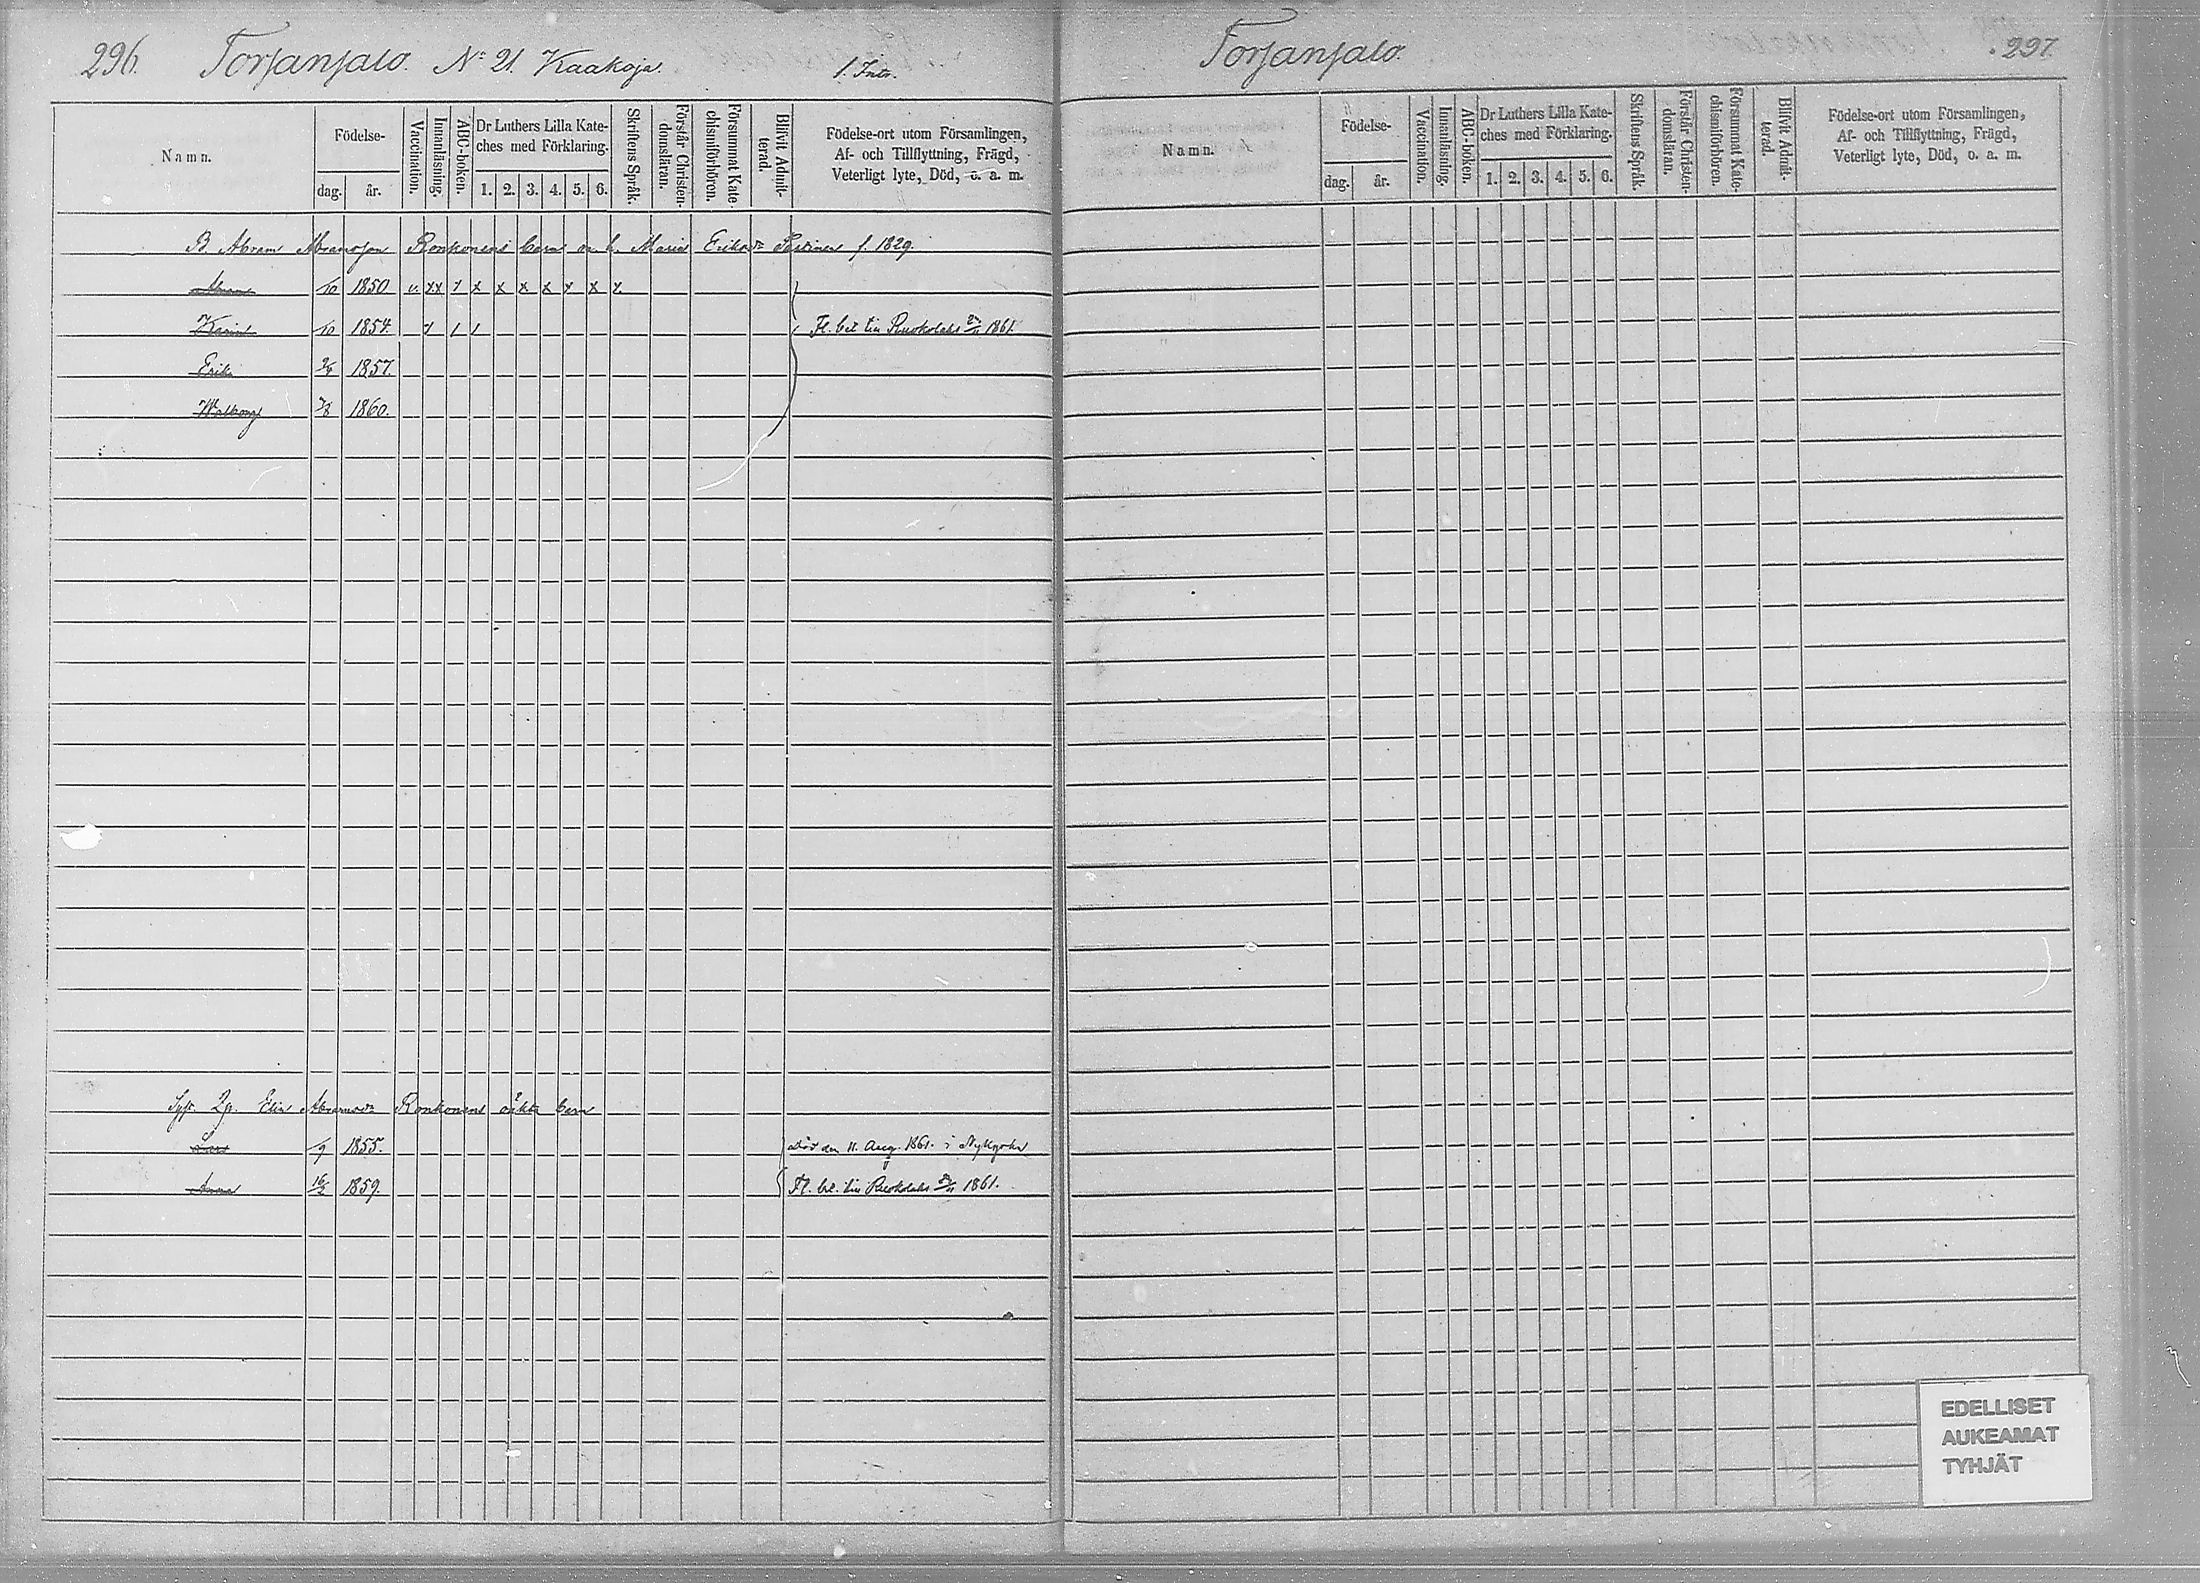 296. Torsansalo. No 21. Kaakoja. 1. Intr.
Namn.
Födelse-
dag. år.
Vaccination.
Innanläsning.
ABC-boken.
Dr Luthers Lilla Kate-
ches med Förklaring.
1. 2. 3. 4. 5. 6.
Skriftens Språk.
Förstår Christen-
domsläran.
Försummat Kate-
chismiförhören.
Blifvit Admit-
terad.
Födelse-ort utom Församlingen,
Af- och Tillflyttning, Frägd,
Veterligt lyte, Död, o. a. m.
B. Abram Abramsson Ronkonens barn m. h. Maria Eriksdr f. 1829.
Abram /10 1850 v. xx x x x x x x x x
Karin /10 1854. 1 1 1 Fl. bet. till Ruokolaks 1861.
Erik 1857.
Walborg 7/8 1860.
Elin Abramsdr Ronkonens oäkta barn
/9 1855. död den 11. Aug. 1861. i Nykyrka
Anna 16/3 1859. Fl. bet. till Ruokolaks 1861.
Torsansalo. 297.
Namn.
Födelse-
dag. år.
Vaccination.
Innanläsning.
ABC-boken.
Dr Luthers Lilla Kate-
ches med Förklaring.
1. 2. 3. 4. 5. 6.
Skriftens Språk.
Förstår Christen-
domsläran.
Försummat Kate-
chismiförhören.
Blifvit Admit-
terad.
Födelse-ort utom Församlingen,
Af- och Tillflyttning, Frägd,
Veterligt lyte, Död, o. a. m.
EDELLISET
AUKEAMAT
TYHJÄT